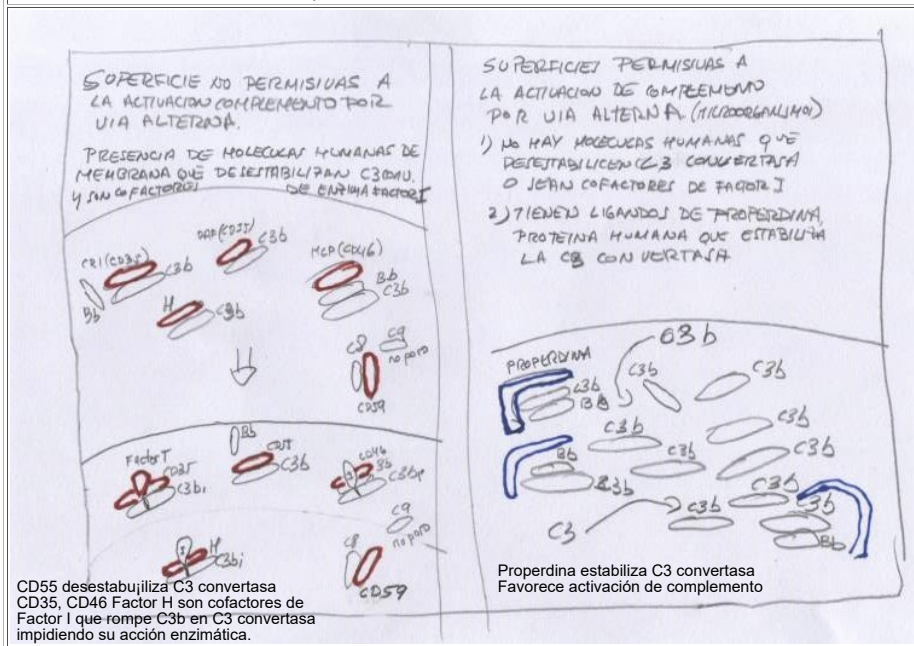 SUPERFICIE NO PERMISIVAS A
LA ACTIVACION COMPLEMENTO POR
VIA ALTERNA.
PRESENCIA DE MOLECULAS HUMANAS DE
MEMBRANA QUE DESESTABILIZAN C3
Y SON COFACTORES DE ENZIMA FACTOR I
CR1(CD35)
C3b
Bb
DAF(CD55)
C3b
MCP(CD46)
Bb
C3b
H
C3b
C8
C9
no poro
CD59
Bb
Factor I
CD35
C3bi
CD55
C3b
CD46
Bb
C3bi
H
C3bi
C8
C9
no poro
CD59
CD55 desestabu¡iliza C3 convertasa
CD35, CD46 Factor H son cofactores de
Factor I que rompe C3b en C3 convertasa
impidiendo su acción enzimática.
SUPERFICIES PERMISIVAS A
LA ACTIVACION DE COMPLEMENTO
POR VIA ALTERNA (MICROORGANISMOS)
1) NO HAY MOLECULAS HUMANAS QUE
DESESTABILICEN C3 CONVERTASA
O SEAN COFACTORES DE FACTOR I
2) TIENEN LIGANDOS DE PROPERDINA,
PROTEINA HUMANA QUE ESTABILIZA
LA C3 CONVERTASA
PROPERDINA
C3b
C3b
C3b
C3b
Bb
C3b
C3b
Bb
C3b
C3b
C3b
C3b
C3b
C3b
C3
C3b
Bb
Properdina estabiliza C3 convertasa
Favorece activación de complemento